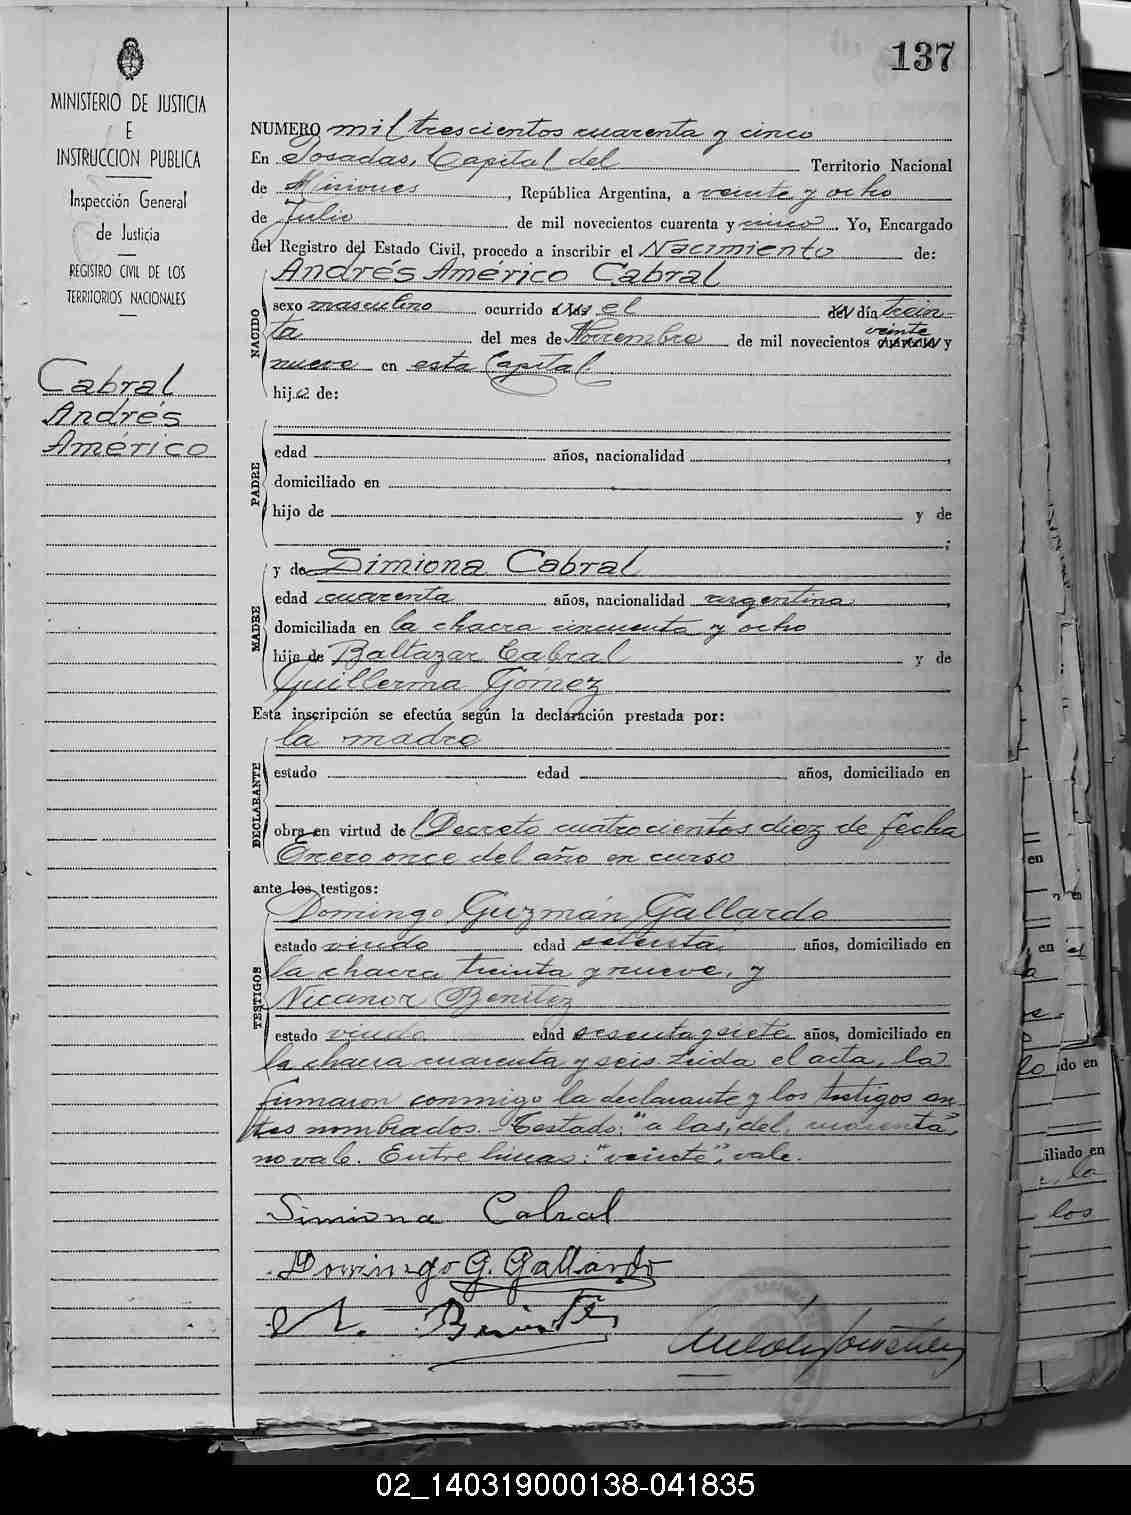 137
MINISTERIO DE JUSTICIA
E
INSTRUCCION PUBLICA
Inspección General
de Justicia
REGISTRO CIVIL DE LOS
TERRITORIOS NACIONALES
Cabral
Andrés
Américo
NUMERO mil trescientos cuarenta y cinco
En Posadas, Capital del Territorio Nacional
de Misiones, República Argentina, a veinte y ocho
de Julio de mil novecientos cuarenta y cinco. Yo, Encargado
del Registro del Estado Civil, procedo a inscribir el Nacimiento de:
NACIDO
Andrés Américo Cabral
sexo masculino ocurrido a las el del día trein-
ta del mes de Noviembre de mil novecientos veinte y
nueve en esta Capital
hijo de:
PADRE
edad años, nacionalidad ,
domiciliado en
hijo de y de
;
MADRE
y de Simiona Cabral
edad cuarenta años, nacionalidad argentina,
domiciliada en la chacra cincuenta y ocho
hija de Baltazar Cabral y de
Guillerma Gómez
Esta inscripción se efectúa según la declaración prestada por:
DECLARANTE
la madre
estado edad años, domiciliado en
obra en virtud de Decreto cuatrocientos diez de fecha
Enero once del año en curso
ante los testigos:
TESTIGOS
Domingo Guzmán Gallardo
estado viudo edad setenta años, domiciliado en
la chacra treinta y nueve, y
Nicanor Benitez
estado viudo edad sesenta y siete años, domiciliado en
la chacra cuarenta y seis. Leida el acta, la
firmaron conmigo la declarante y los testigos an-
tes nombrados. Testado: "a las, del, cuarenta",
no vale. Entre lineas: "veinte", vale.
Simiona Cabral
Domingo G. Gallardo
N. Benitez
en
en
en
ido en
iliado en
la
los
02_140319000138-041835